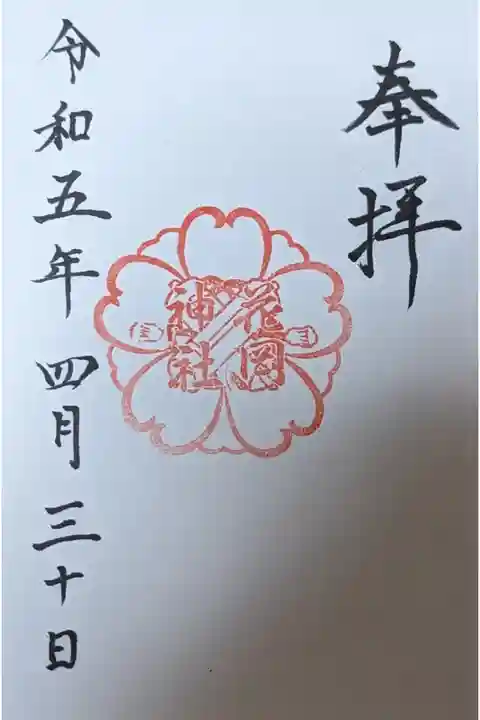 奉拝
花岡
神社
令和五年四月三十日